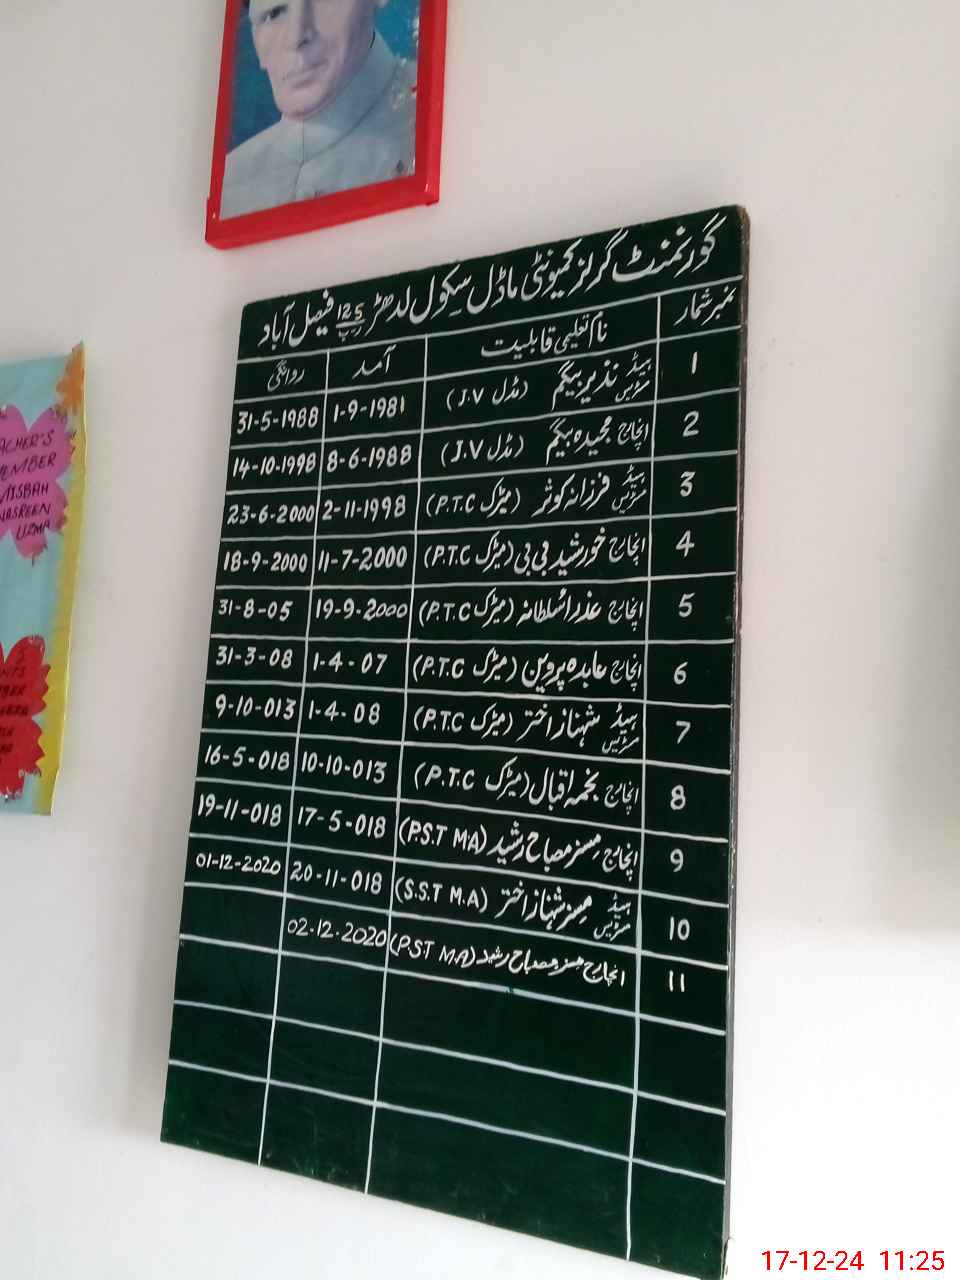 گورنمنٹ گرلز کمیونٹی ماڈل سکول لدھڑ 125 ر-ب فیصل آباد
نمبر شمار نام تعلیمی قابلیت آمد روانگی
1 ہیڈ مسٹریس نذیر بیگم (مڈل J.V) 1-9-1981 31-5-1988
2 انچارج مجیدہ بیگم (مڈل J.V) 8-6-1988 14-10-1998
3 ہیڈ مسٹریس فرزانہ کوثر (میٹرک P.T.C) 2-11-1998 23-6-2000
4 انچارج خورشید بی بی (میٹرک P.T.C) 11-7-2000 18-9-2000
5 انچارج عذرا سلطانہ (میٹرک P.T.C) 19-9-2000 31-8-05
6 انچارج عابدہ پروین (میٹرک P.T.C) 1-4-07 31-3-08
7 ہیڈ مسٹریس شہناز اختر (میٹرک P.T.C) 1-4-08 9-10-013
8 انچارج نجمہ اقبال (میٹرک P.T.C) 10-10-013 16-5-018
9 انچارج مسز مصباح رشید (P.S.T M.A) 17-5-018 19-11-018
10 ہیڈ مسٹریس مسز شہناز اختر (S.S.T M.A) 20-11-018 01-12-2020
11 انچارج مسز مصباح رشید (P.S.T M.A) 02-12-2020
MISBAH
UZMA
17-12-24 11:25